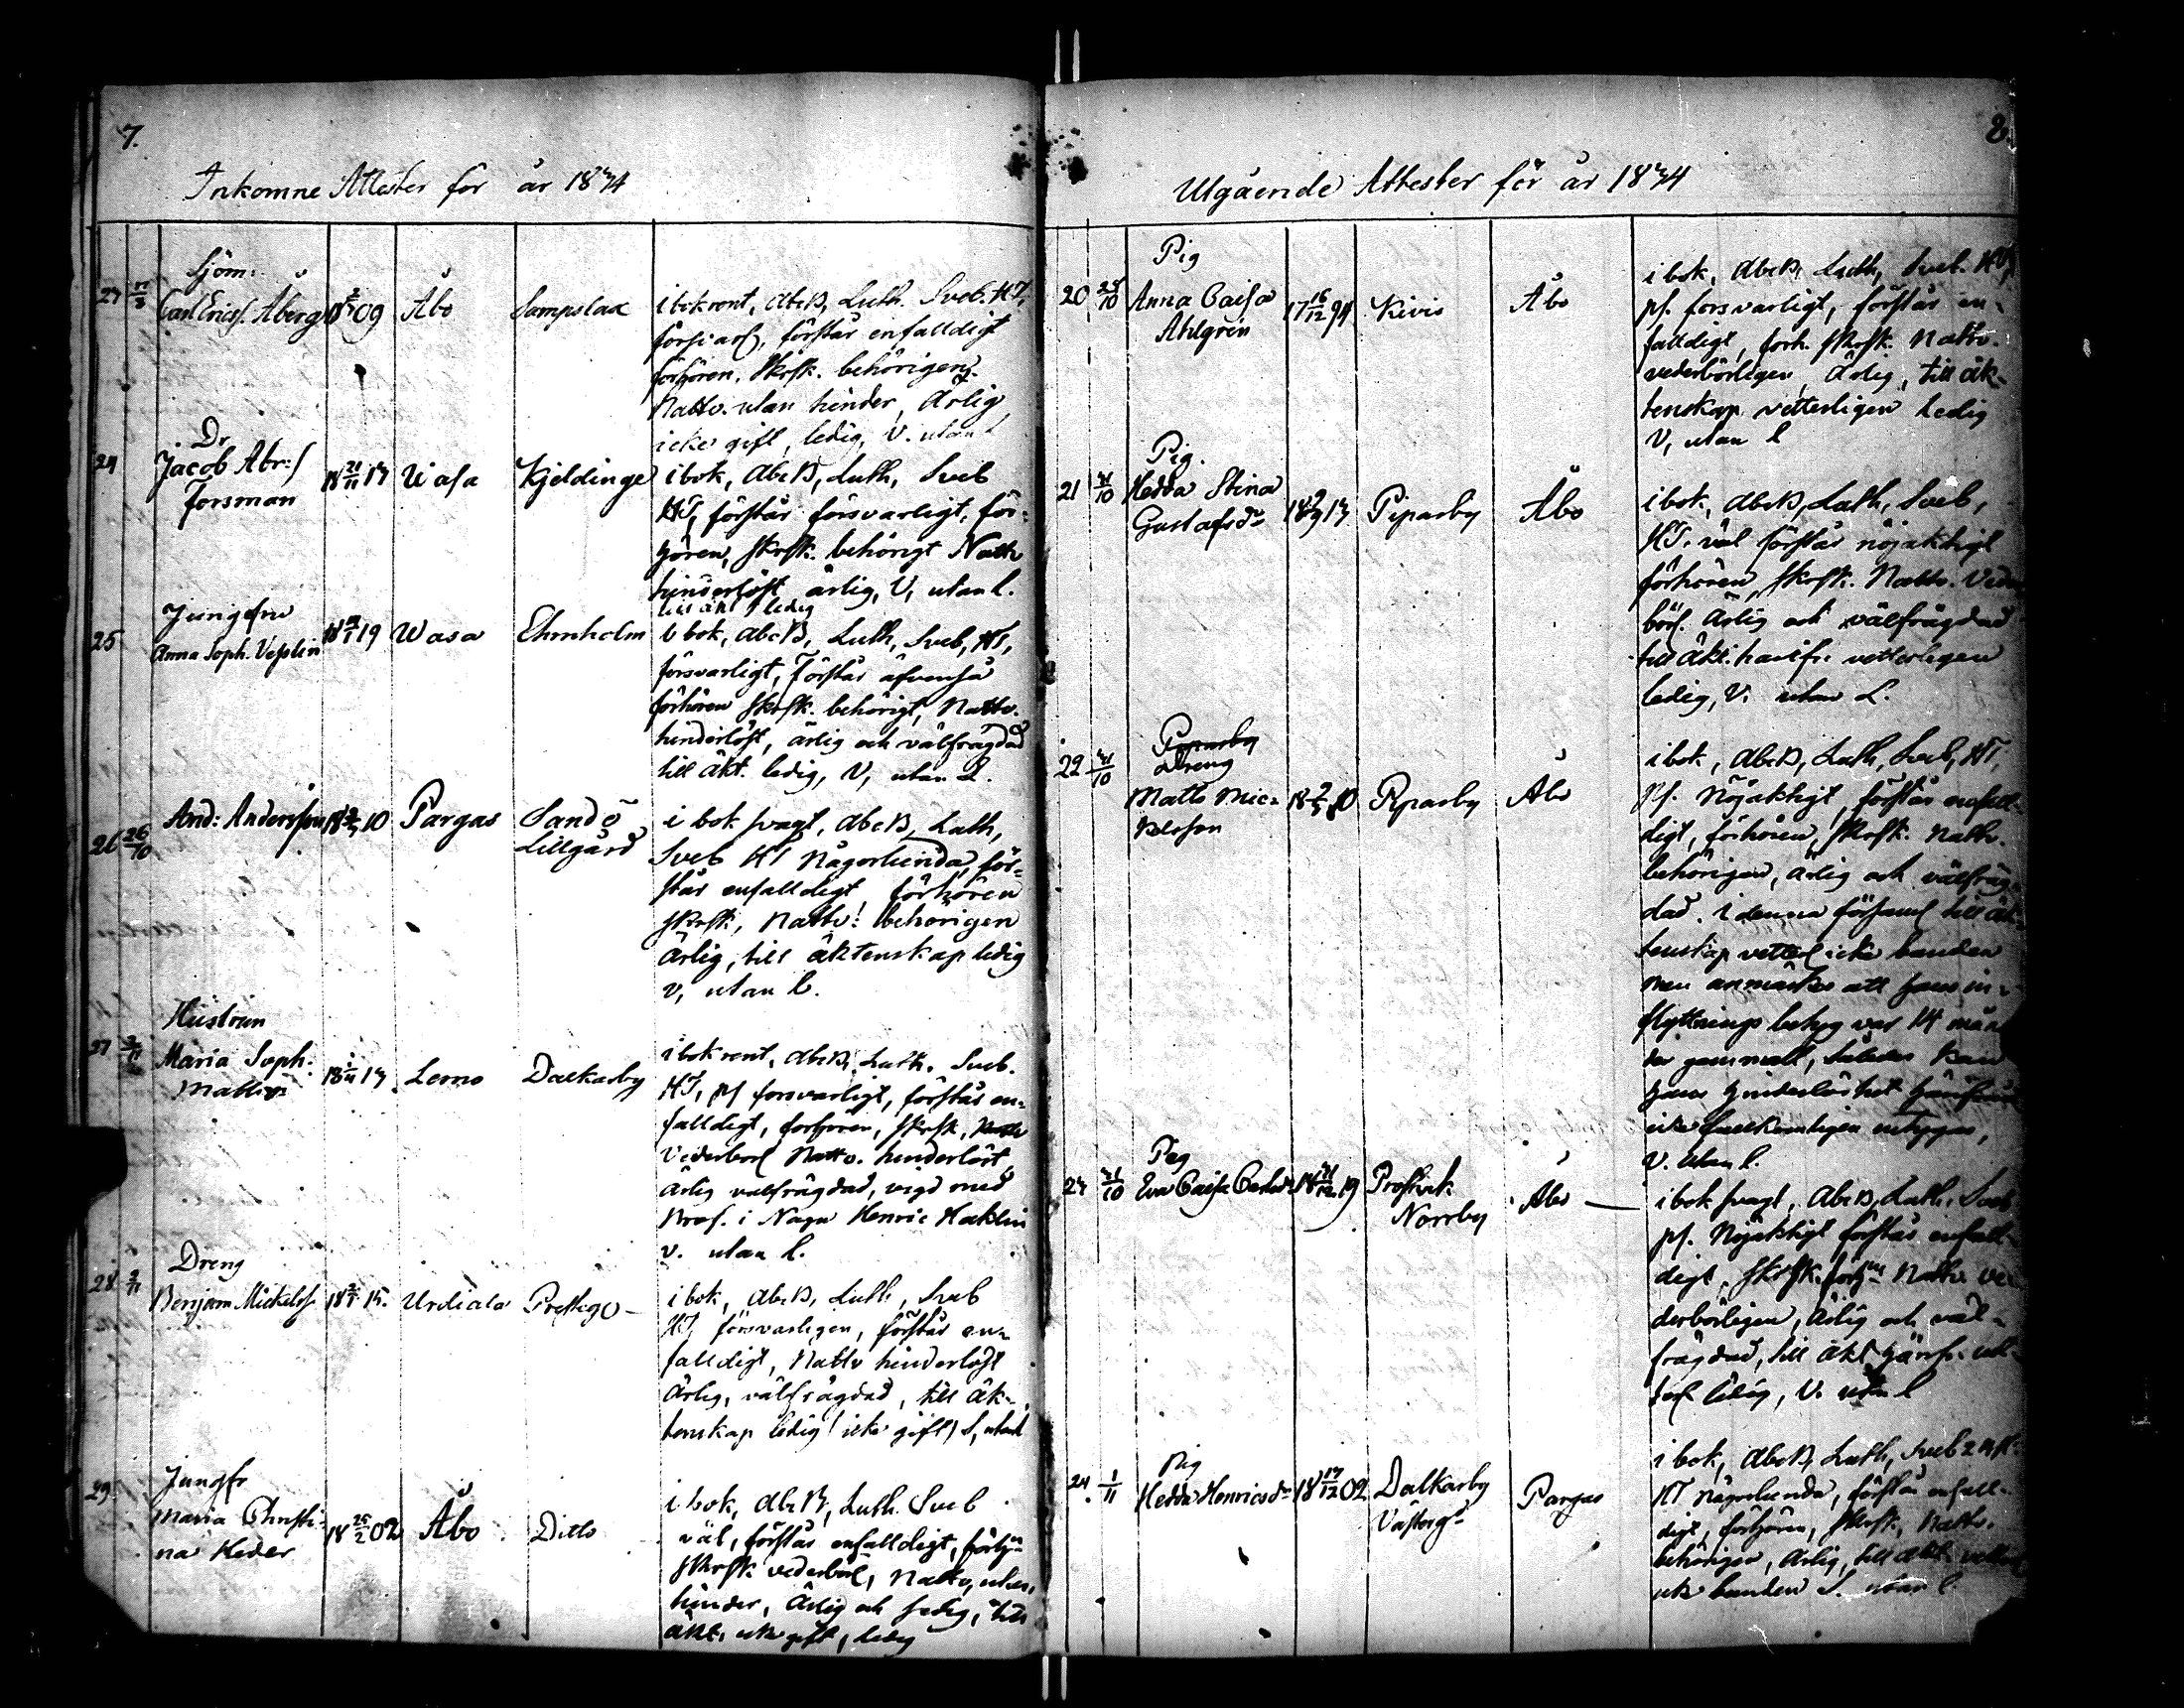 7.
Inkomne Attester för år 1834
Sjöm:
Carl Ericss. Åberg 09 Åbo Sampslax
i bok rent, AbcB, Luth. Sveb. HT,
förstår enfalldigt
förhören. Skrsk. behörigen.
Nattv. utan hinder, Ärlig,
icke gift, ledig, V. utan l
24
Dr
Jacob Abr:s
Forsman
18 21/11 13 Wasa Kjeldinge
i bok, AbcB, Luth, Sveb
HT, förstår försvarligt, för-
hören, Skrsk. behörigt Nattv
hinderlöst ärlig, V, utan l.
till äkt ledig
25
Jungfru
Anna Soph. Vesslin
19 Wasa Ehrnholm
i bok, AbcB, Luth, Sveb, HT,
försvarligt, Förstår äfvenså
förhören Skrsk. behörigt, Nattv.
hinderlöst, ärlig och välfrägdad
till äkt. ledig, V, utan L.
26 26/10
And: Andersson 10 Pargas Sandö
Lillgård
i bok svagt, AbcB, Luth,
Sveb HT Någorlunda, för-
står enfalldigt förhören
Skrsk, Nattv. behörigen
Ärlig, till äktenskap ledig
V, utan l.
27
Hustrun
Maria Soph:
Mattsdr
13 Lemo Dalkarby
i bok rent, AbcB, Luth. Sveb.
HT, ps försvarligt, förstår en-
falldigt, förhören, Skrsk, Nattv
Vederbörl Nattv. hinderlöst,
Ärlig välfrägdad, vigd med
i Nagu Henric
V. utan l.
28 2/11
Dreng
Benjam Mickelss. 15. Urdiala Prestgo
i bok, AbcB, Luth, Sveb
HT, försvarligen, förstår en-
falldigt, Nattv hinderlöst
Ärlig, välfrägdad, till äk-
tenskap ledig (icke gift) S, utanl
29
Jungfr
Maria Christi-
na Heder
18 25/2 02 Åbo Ditto
i bok, AbcB, Luth. Sveb
väl, förstår enfalldigt, förhö-
Skrsk. vederbörl, Nattv, utan,
hinder, Ärlig och till
äkt. gift, ledig
8.
Utgående Attester för år 1834
20 28/10
Pig
Anna Caisa
Ahlgren
17 16/12 94 Kivis Åbo
i bok, AbcB, Luth, Sveb. HT,
ps. försvarligt, förstår en-
falldigt, förh. Skrsk. Nattv.
vederbörligen, Ärlig, till äk-
tenskap vetterligen ledig
V, utan l
21 31/10
Pig.
Hedda Stina
Gustafsdr
13 Piparby Åbo
i bok, AbcB, Luth, Sveb,
HT. väl förstår nöjaktigt
förhören, Skrsk. Nattv. Veder
börl. Ärlig och välfrägdad
till äkt. härifr. vetterligen
ledig, V. utan L.
22 31/10
Piparby
Dreng
Matts Mic-
kelsson
10 Piparby Åbo
i bok, AbcB, Luth, Sveb, HT,
ps. Nöjaktigt, förstår enfall-
digt, förhören, Skrsk. Nattv.
behörigen, ärlig och välfräg-
dad. i denna församl till äk-
tenskap vetterl icke bunden
men anmärkes att hans in-
flyttnings betyg var 14 måna
der gammalt, således kan
hans hinderlöshet härifrån
icke fullkomligen intygas,
V. utan l.
23 31/10
Pig
Eva Caisa Carlsdr 19 Prostvik
Norrby
Åbo
i bok svagt, AbcB, Luth. Sveb
ps. Nöjaktigt förstår enfall-
digt, Skrsk. Nattv. ve-
derbörligen, Ärlig och väl-
frägdad, till äkt härifr. vet-
terl ledig, V. utan l
24 1/11
Pig
Hedda Henricsdr 02 Dalkarby
Västerg
Pargas
i bok, AbcB, Luth, Sveb
HT någorlunda, förstår enfall-
digt, förhören, Skrsk, Nattv.
behörigen, Ärlig, till äkt. vetterl
icke bunden S. utan l.